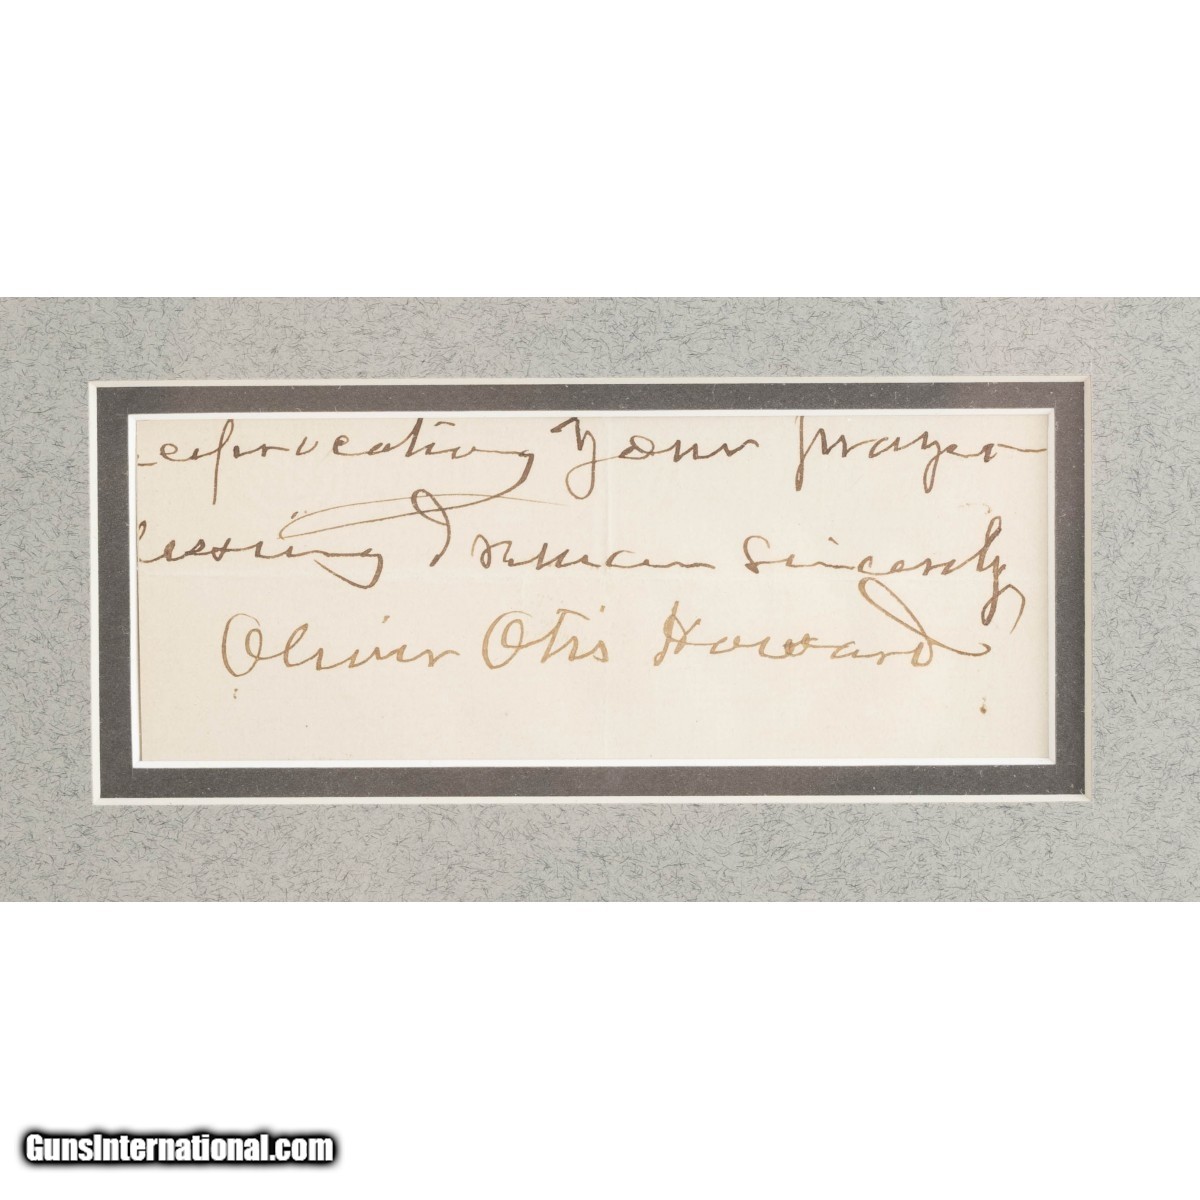 eciprocating your prayer
lessing I remain sincerely
Oliver Otis Howard
GunsInternational.com